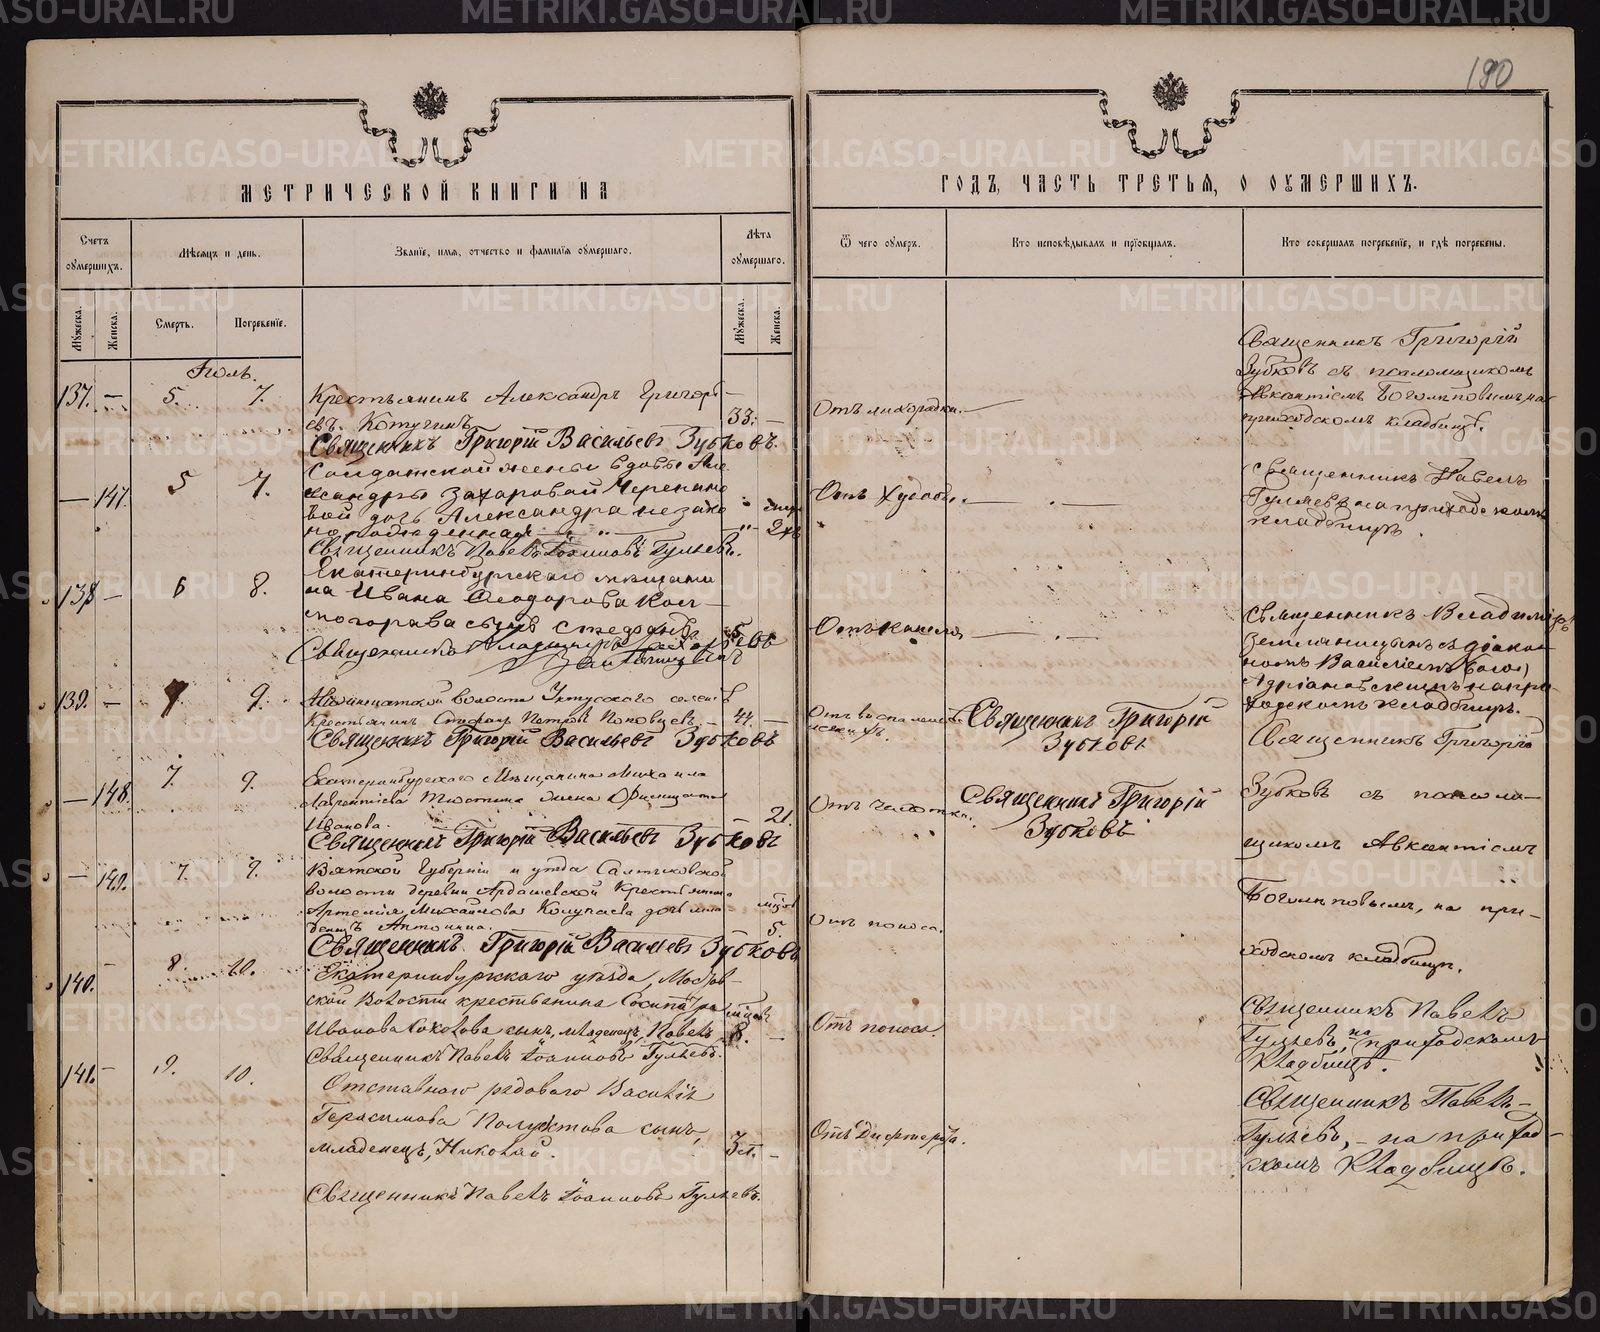 180
МЕТРИЧЕСКОЙ КНИГИ НА
ГОДЪ, ЧАСТЬ ТРЕТЬЯ, О ОУМЕРШИХЪ.
Счетъ оумершихъ.
Мѣсяцъ и день.
Званіе, имя, отчество и фамилія оумершаго.
Лѣта оумершаго.
Ѿ чего оумеръ.
Кто исповѣдывалъ и пріобщалъ.
Кто совершалъ погребеніе, и гдѣ погребены.
Мужеска.
Женска.
Смерть.
Погребеніе.
Мужеска.
Женска.
Іюль.
137. — 5. 7.
Крестьянинъ Александръ Григорь
евъ
33. —
Священникъ Григорій Васильевъ Зубковъ.
Отъ лихорадки.
Священникъ Григорій
Зубковъ съ псаломщикомъ
Авкентіемъ Боголѣповымъ, на
приходскомъ кладбищѣ.
— 147. 5 7.
Солдатской жены вдовы Але
ксандры Захаровой
вой дочь Александра незако
норожденная
Священникъ Павелъ Іоанновъ Гуляевъ.
Отъ худобы.
Священникъ Павелъ
Гуляевъ на приходскомъ
кладбищѣ
138 — 6 8.
Екатеринбургского мѣщани
на Ивана Ѳеодорова
сынъ
5
Священникъ Владиміръ
Отъ кашля
Священникъ Владиміръ
Земляницынъ съ діако
номъ Василіемъ
на при
ходскомъ кладбищѣ.
139. — 7 9.
волости Уктусского селенія
Крестьянинъ Стефанъ Петровъ
44. —
Священникъ Григорій Васильевъ Зубковъ
Отъ воспаленія
Священникъ Григорій
Зубковъ
Священникъ Григорій
Зубковъ съ псалом-
щикомъ Авкентіемъ
Боголѣповымъ, на при-
ходскомъ кладбищѣ.
— 148. 7. 9.
Екатеринбургскаго Мѣщанина Михаила
Лаврентіева жена
Иванова.
— 21.
Священникъ Григорій Васильевъ Зубковъ
Отъ чахотки.
Священникъ Григорій
Зубковъ.
— 149. 7. 9.
Вятской Губерніи и уѣзда
волости деревни Ардашевской Крестьянина
Артемія Михайлова дочь мла
денецъ Антонина.
5.
Священникъ Григорій Васильевъ Зубковъ
Отъ поноса.
140. — 8. 10.
Екатеринбургскаго уѣзда,
ской волости крестьянина Сосипатра
Иванова Соколова сынъ, младенецъ, Павелъ,
8. —
Священникъ Павелъ Іоанновъ Гуляевъ.
Отъ поноса.
Священникъ Павелъ
Гуляевъ, на приходскомъ
кладбищѣ.
141. — 9. 10.
Отставного рядового Василія
Герасимова Полуектова сынъ,
младенецъ, Николай.
3 л. —
Священникъ Павелъ Іоанновъ Гуляевъ.
Отъ Дифтерита.
Священникъ Павелъ
Гуляевъ, — на приход-
скомъ кладбищѣ.
METRIKI.GASO-URAL.RU